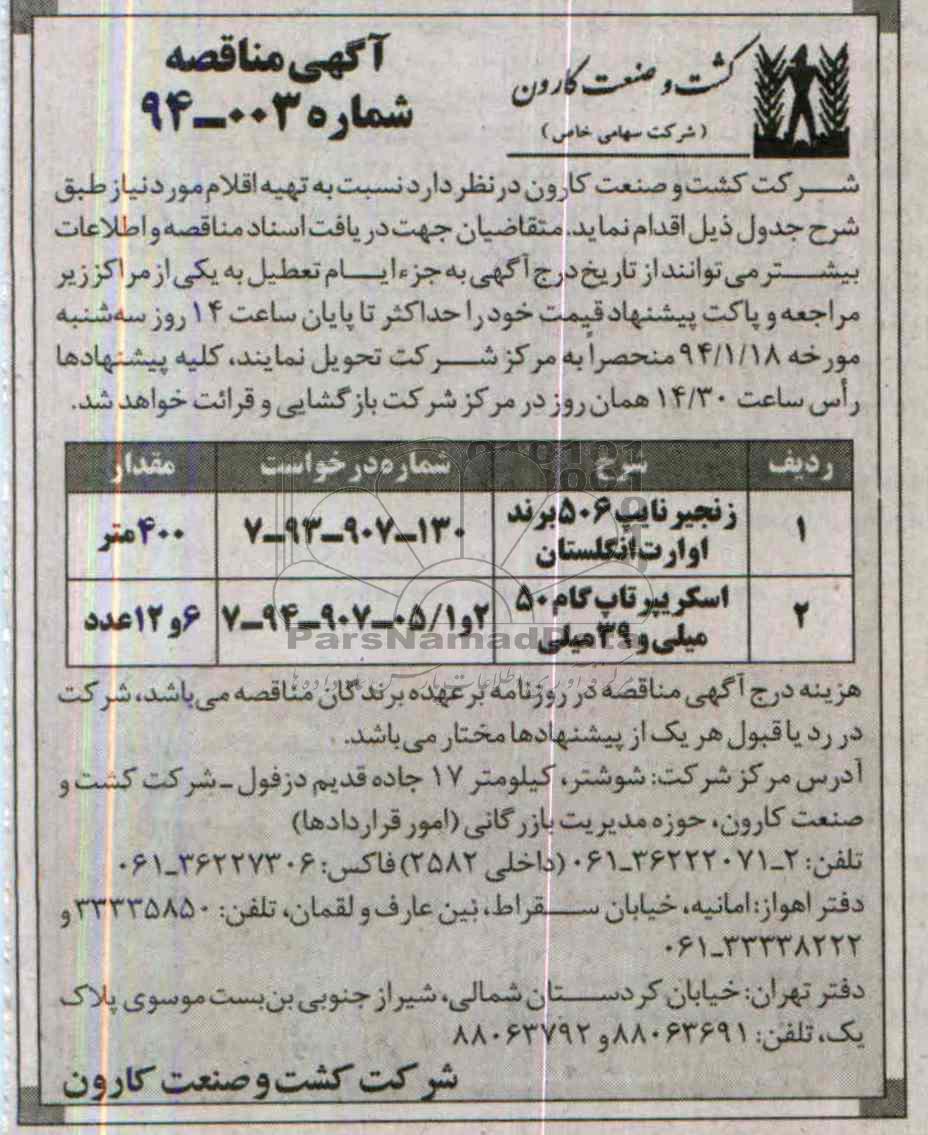 کشت و صنعت کارون
(شرکت سهامی خاص)
آگهی مناقصه
شماره ۰۰۳ـ۹۴
شرکت کشت و صنعت کارون در نظر دارد نسبت به تهیه اقلام مورد نیاز طبق
شرح جدول ذیل اقدام نماید. متقاضیان جهت دریافت اسناد مناقصه و اطلاعات
بیشتر می توانند از تاریخ درج آگهی به جزء ایام تعطیل به یکی از مراکز زیر
مراجعه و پاکت پیشنهاد قیمت خود را حداکثر تا پایان ساعت ۱۴ روز سه‌شنبه
مورخه ۹۴/۱/۱۸ منحصراً به مرکز شرکت تحویل نمایند، کلیه پیشنهادها
رأس ساعت ۱۴/۳۰ همان روز در مرکز شرکت بازگشایی و قرائت خواهد شد.
ردیف شرح شماره درخواست مقدار
۱ زنجیر تایپ ۵۰۶ برند ۱۳۰ـ۹۰۷ـ۹۳ـ۷ ۴۰۰ متر
اوارت انگلستان
۲ اسکریپر تاپ گام ۵۰ ۲و۰۵/۱ـ۹۰۷ـ۹۴ـ۷ ۶ و ۱۲ عدد
میلی و ۳۹ میلی
ParsNamadData
هزینه درج آگهی مناقصه در روزنامه بر عهده برندگان مناقصه می‌باشد، شرکت
در رد یا قبول هر یک از پیشنهادها مختار می باشد.
آدرس مرکز شرکت: شوشتر، کیلومتر ۱۷ جاده قدیم دزفول ـ شرکت کشت و
صنعت کارون، حوزه مدیریت بازرگانی (امور قراردادها)
تلفن: ۲ـ۳۶۲۲۲۰۷۱ـ۰۶۱ (داخلی ۲۵۸۲) فاکس: ۳۶۲۲۷۳۰۶ـ۰۶۱
دفتر اهواز: امانیه، خیابان سقراط، بین عارف و لقمان، تلفن: ۳۳۳۳۵۸۵۰ و
۳۳۳۳۸۲۲۲ـ۰۶۱
دفتر تهران: خیابان کردستان شمالی، شیراز جنوبی بن‌بست موسوی پلاک
یک، تلفن: ۸۸۰۶۳۶۹۱ و ۸۸۰۶۳۷۹۲
شرکت کشت و صنعت کارون